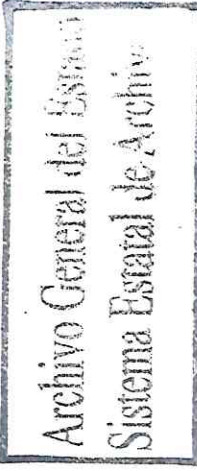 Archivo General del Estado
Sistema Estatal de Archiv